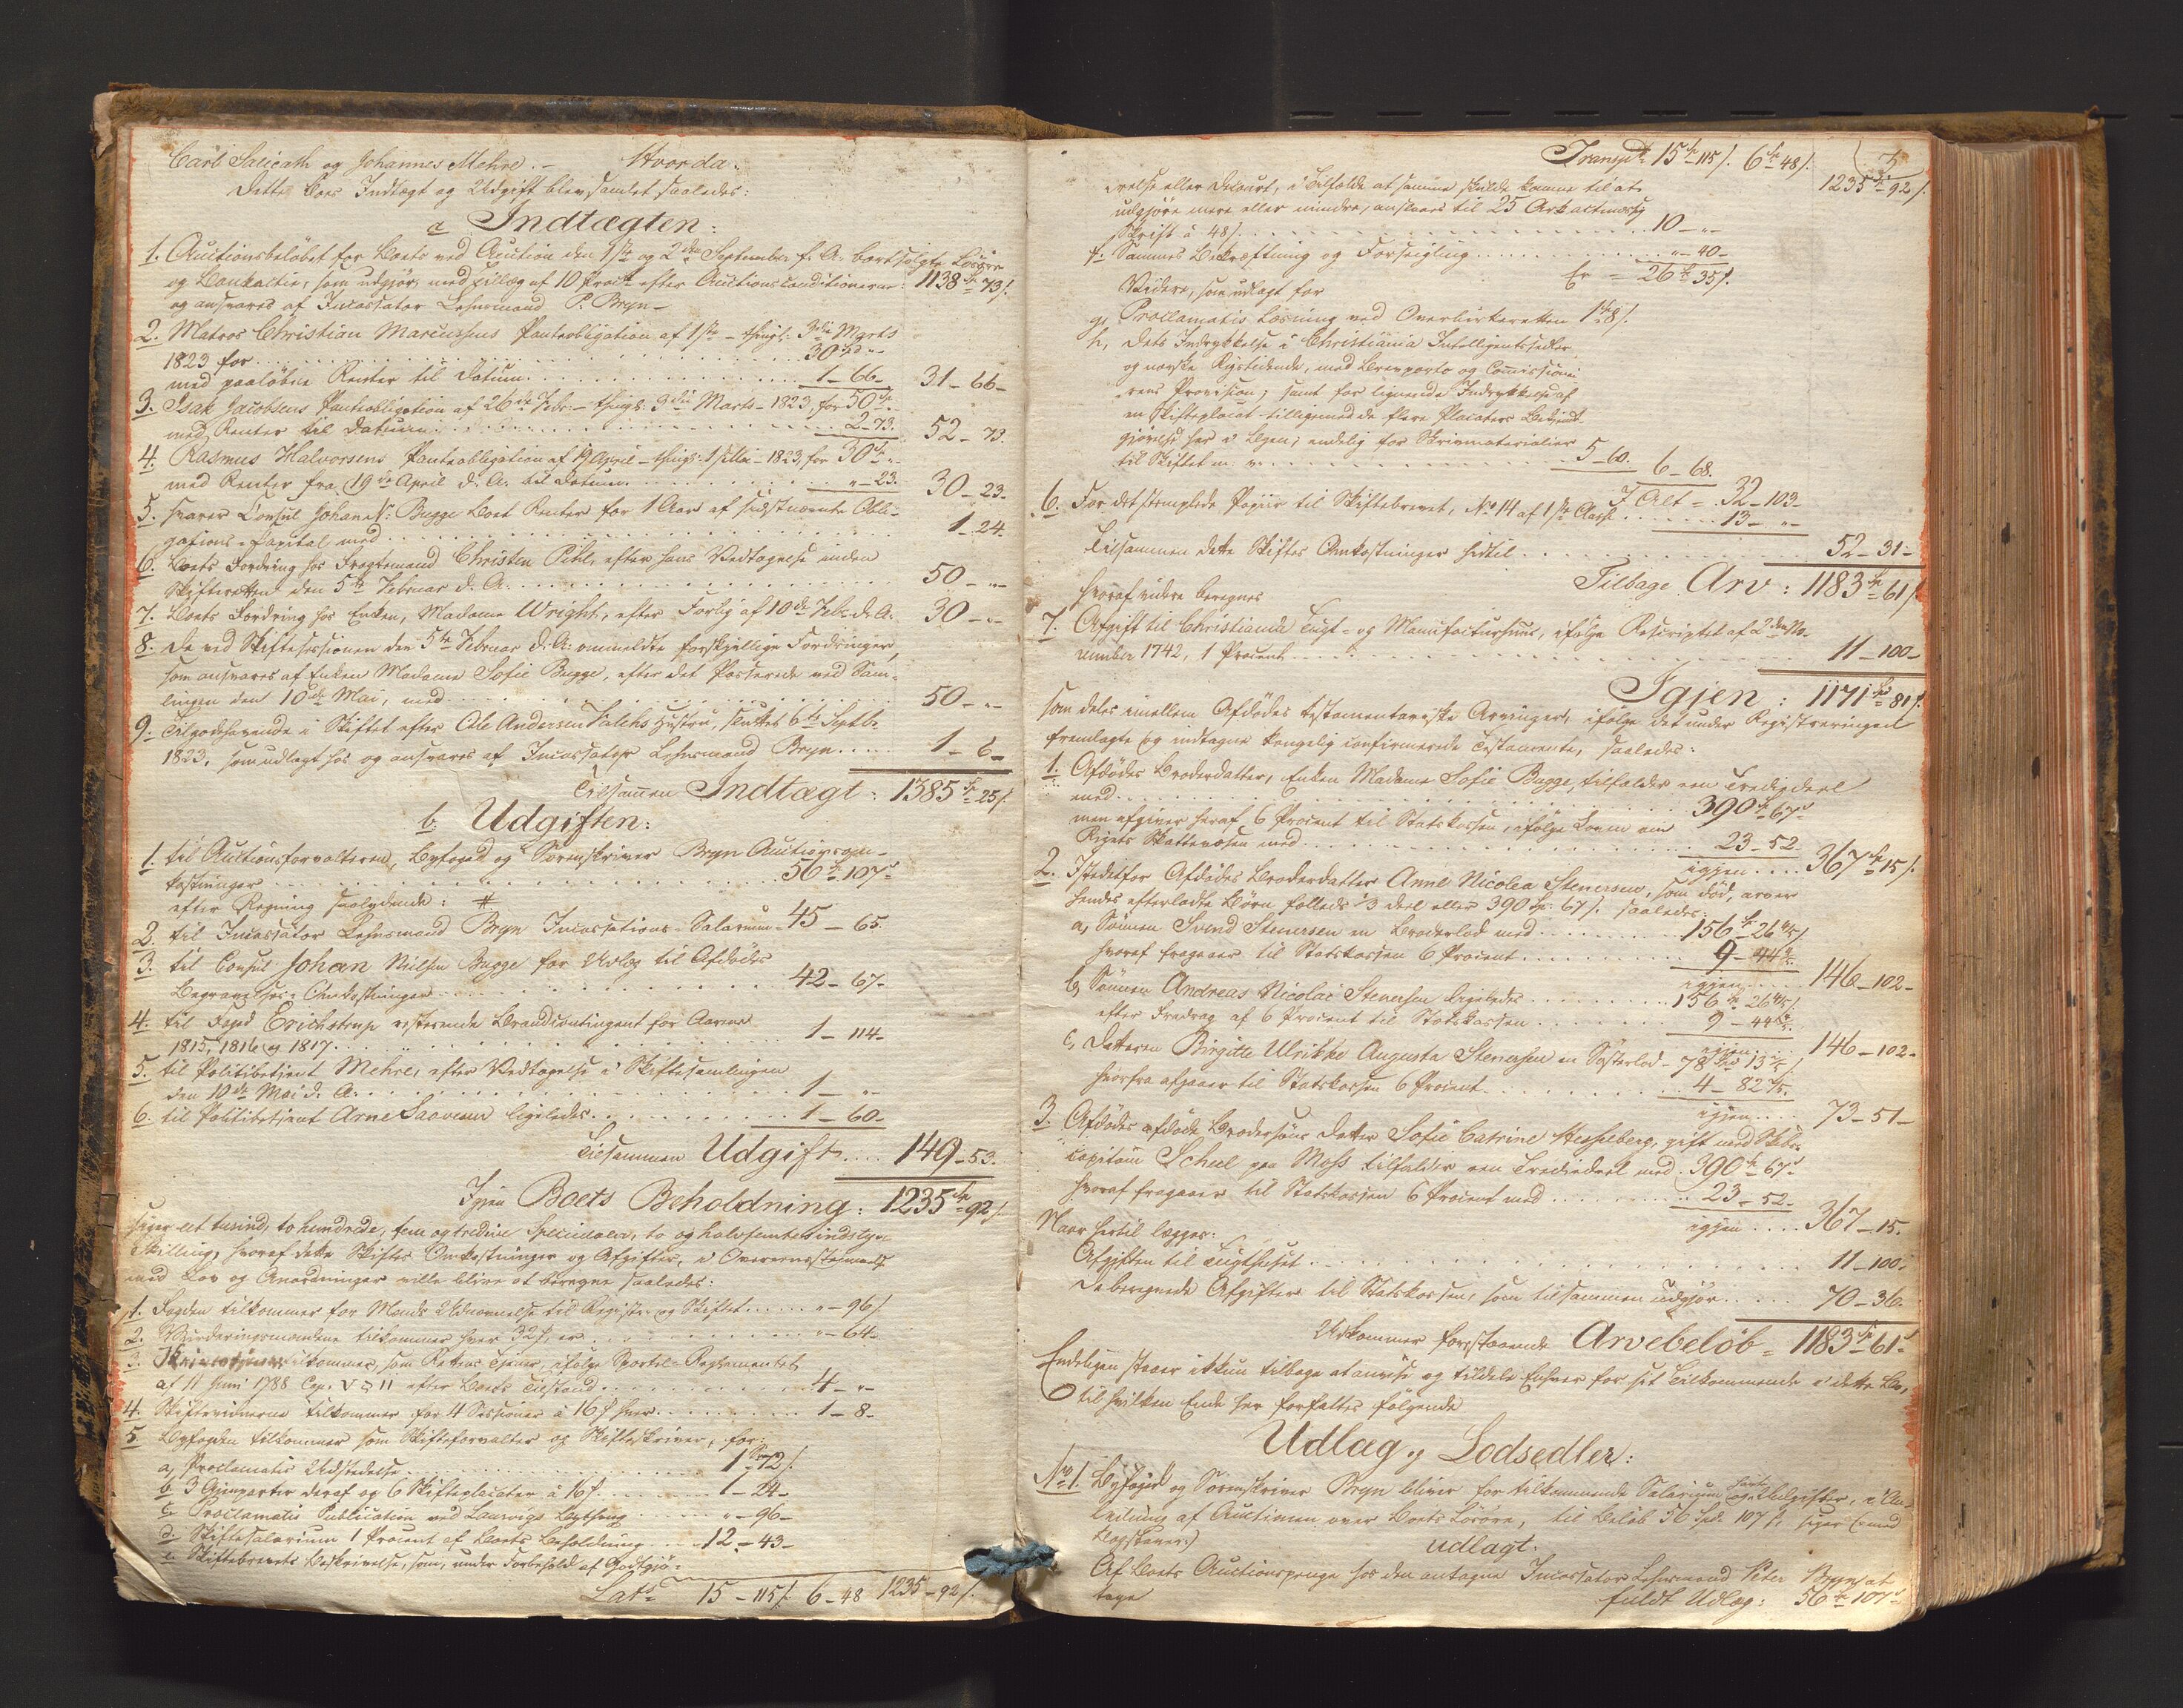 Carl Salicath og Johannes Mehre. – Hvorda
dette Boes Indtægt og Udgift blev samlet saaledes:
a Indtægten:
1. Auctionsbeløbet for Boets ved Auction den 1ste og 2den September f. A. bortsolgte Løsøre
og Bankactie, som udgjør, med Tillæg af 10 Procent efter Auctionsconditionerne: 1138 Sp 73 s.
og ansvares af Incassator Lehnsmand P. Bryn –
2. Matros Christian Marcussens Panteobligation af 1ste – thingl: 3die Marts
1823 for . . . 30 Spd „-
med paaløbne Renter til Datum . . . 1 – 66 – 31 – 66 –
3. Isak Jacobsens Panteobligation af 26de Febr: – thingl: 3die Marts – 1823, for 50 Sp „-
med Renter til Datum . . . 2 – 73. 52 – 73.
4. Rasmus Halvorsens Panteobligation af 19 April – thingl: 1 Mai – 1823, for 30 Sp „-
med Renter fra 19de April d. A. til Datum . . . „ – 23. 30 – 23 –
5. svarer Consul Johan N: Bugge Boet Renter for 1 Aar af sidstnævnte Obli-
gations-Capital med . . . 1 – 24.
6. Boets Fordring hos Fragtemand Christen Pihl, efter hans Vedtagelse inden
Skifteretten den 5te Februar d. A. . . . 50 – „-
7. Boets Fordring hos Enken, Madame Wright, efter Forlig af 10de Feb: d. A: 30 – „-
8. De ved Skiftesessionen den 5te Februar d. A: anmeldte forskjellige Fordringer,
som ansvares af Enken Madame Sofie Bugge, efter det Passerede ved Sam-
lingen den 10de Mai, med . . . 50 – „-
9. Tilgodehavende i Skiftet efter Ole Andersen Falchs Hustru, sluttet 6te Septbr.
1823, som udlagt hos og ansvares af Incassator Lehnsmand Bryn . . . 1 – 6 –
Tilsammen Indtægt: 1385 Sp 25 s.
b. Udgiften:
1. til Auctionsforvalteren, Byfoged og Sorenskriver Bryn Auctionsom-
kostninger . . . 56 Sp 107 s
efter Regning saalydende: #
2. til Incassator Lehnsmand Bryn Incassations-Salarium – 45 – 65.
3. til Consul Johan Nielsen Bugge for Udlæg til Afdødes
Begravelses-Omkostninger . . . 42 – 67 –
4. til Foged Erichstrup resterende Brandcontingent for Aarene
1815, 1816 og 1817 . . . 1 – 114 –
5. til Politibetjent Mehre, efter Vedtagelse i Skiftesamlingen
den 10de Mai d. A. . . . 1 – „-
6. til Politibetjent Arne ligeledes . . . 1 – 60 –
Tilsammen Udgift . . . 149 – 53.
Igjen Boets Beholdning: 1235 Sp 92 s.
siger eet tusind, to hundrede, fem og tredive Speciedaler, to og halvfemtesindstyve
Skilling, hvoraf dette Skiftes Omkostninger og Afgifter, i Overeensstemmelse
med Lov og Anordninger ville blive at beregne saaledes:
1. Fogden tilkommer for Mænds Udnævnelse til Registr: og Skiftet . . . „ – 96 s.
2. Vurderingsmændene tilkommer hver 32 s, er . . . „ – 64 –
3. tilkommer, som Rettens Tjener, ifølge Sportel-Reglementet
af 11 Juni 1788 Cap. V § 11 efter Boets Tilstand . . . 4 – „-
4. Skiftevidnerne tilkommer for 4 Sessioner à 16 s hver . . . 1 – 8 –
5. Byfogden tilkommer som Skifteforvalter og Skifteskriver, for:
a, Proclamatis Udstedelse . . . 1 Sp 72 s.
b. 3 Gjenparter deraf og 6 Skifteplacater à 16 s. . . . 1 – 24 –
c. Proclamatis Publication ved Laurvigs Bything . . . „ – 96 –
d. Skiftesalarium 1 Procent af Boets Beholdning . . . 12 – 43 –
e. Skiftebrevets Beskrivelse, som, under Forbehold af Godtgjø-
Lats 15 – 115 s. 6 – 48 1235 – 92 s.
Transpt 15 Sp 115 s. 6 Sp 48 s. 1235 Sp 92 s.
relse eller Decourt, i Tilfælde at samme skulde komme til at
udgjøre mere eller mindre, ansættes til 25 Ark actmæssig
Skrift à 48 s. . . . 10 – „-
f. Sammes Bekræftning og Forsegling . . . „ – 40 –
Er = 26 Sp 35 s.
Videre, som udlagt for
g, Proclamatis Læsning ved Overbirkeretten 1 Sp 8 s.
h, dets Indrykkelse i Christiania Intelligentssedler
og norske Rigstidende, med Brevporto og Commissionai-
rens Provision; samt for lignende Indrykkelse af
en Skifteplacat tilligemed de flere Placaters Bekjendt-
gjørelse her i Byen; endelig for Skrivmaterialier
til Skiftet m. v. . . . 5 – 60. 6 – 68.
I Alt = 32 – 103 –
6. For det stemplede Papiir til Skiftebrevet, No 14 af 1ste Classe . . . 13 – „-
Tilsammen dette Skiftes Omkostninger hidtil . . . 52 – 31 –
Tilbage Arv: 1183 Sp 61 s.
hvoraf videre beregnes
7. Afgift til Christiania Tugt- og Manufacturhuus, ifølge Rescriptet af 2den No-
vember 1742, 1 Procent . . . 11 – 100 –
Igjen: 1171 Sp 81 s.
som deles imellem Afdødes testamentariske Arvinger, ifølge det under Registreringen
fremlagte og indtagne kongelig confirmerede Testamente, saaledes:
1. Afdødes Broderdatter, Enken Madame Sofie Bugge, tilfalder een Trediedeel
med . . . 390 Sp 67 s
men afgiver heraf 6 Procent til Statskassen, ifølge Loven om
Rigets Skattevæsen med . . . 23 – 52 –
igjen . . . 367 Sp 15 s.
2. Istedetfor Afdødes Broderdatter Anne Nicolea Stenersen, som død, arver
hendes efterladte Børn fælleds 1/3 deel eller 390 Sp: 67 s. saaledes:
a, Sønnen Svend Stenersen en Broderlod med . . . 156 Sp 26 4/5 s.
hvoraf fragaaer til Statskassen 6 Procent . . . 9 – 44 4/5
igjen . . . 146 – 102 –
b, Sønnen Andreas Nicolai Stenersen ligeledes . . . 156 Sp 26 4/5 s.
efter Fradrag af 6 Procent til Statskassen . . . 9 – 44 4/5
igjen . . . 146 – 102 –
c, Datteren Birgitte Ulrikke Augusta Stenersen en Søsterlod – 78 Spd 13 2/5 s.
hvorfra afgaaer til Statskassen 6 Procent . . . 4 – 82 2/5.
igjen . . . 73 – 51 –
3. Afdødes afdøde Brodersøns Datter Sofie Catrine Hesselberg, gift med Skibs-
capitain Scheel paa Moss tilfalder een Trediedeel med 390 Sp 67 s
hvoraf fragaaer til Statskassen 6 Procent med . . . 23 – 52 –
igjen . . . 367 – 15.
Naar hertil lægges:
Afgiften til Tugthuset . . . 11 – 100 –
De beregnede Afgifter til Statskassen, som tilsammen udgjør . . . 70 – 36 –
Udkommer forestaaende Arvebeløb = 1183 Sp 61 s
Endeligen staaer ikkun tilbage at anvise og tildele Enhver for sit Tilkommende i dette Bo,
til hvilken Ende her forfattes følgende
Udlæg og Lodsedler:
No 1. Byfoged og Sorenskriver Bryn bliver for tilkommende Salarium og havte Udgifter, i An-
ledning af Auctionen over Boets Løsøre, til Beløb 56 Spd. 107 s. siger (med
Bogstaver)
udlagt.
Af Boets Auctionspenge hos den antagne Incassator Lehnsmand Peter Bryn at
tage fuldt Udlæg: 56 Sp 107 s